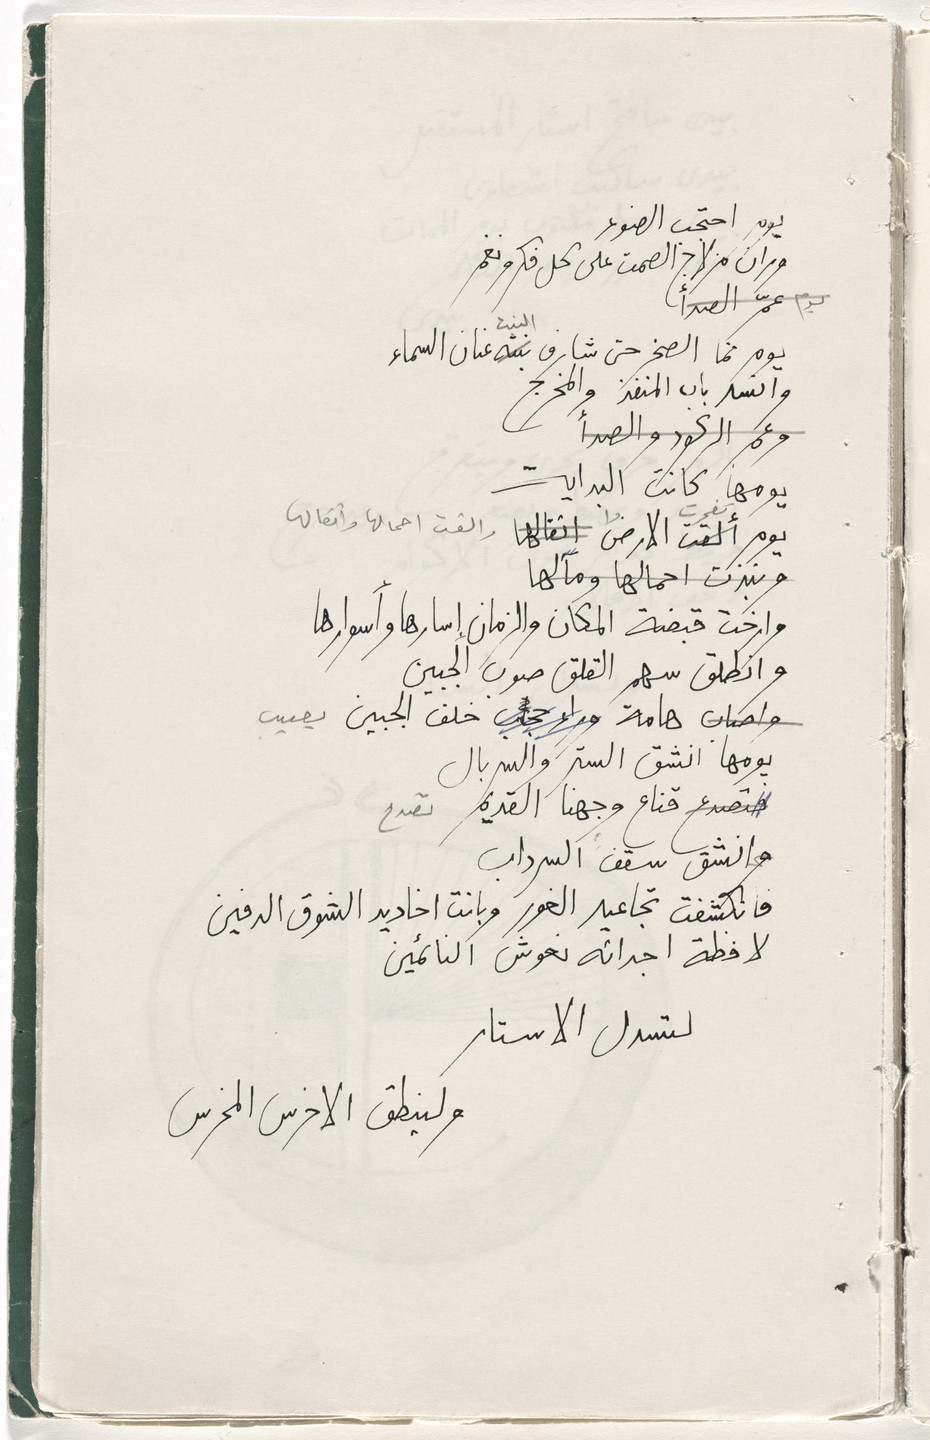 يوم احتجب الضوء
وران مزلاج الصمت على كل فكر ونغم
يوم عمّ الصدأ
يوم نما الصخر حتى شارف البنية عنان السماء
وانسد باب المنفذ والمخرج
وعم الركود والصدأ
يومها كانت البدايات
يوم ألقت الارض اثقالها والقت احمالها وأثقالها
ونبذت احمالها ومآلها
وارخت قبضة المكان والزمان إسارها وأسوارها
وانطلق سهم القلق صوب الجبين
واصاب هامة وراء خلف الجبين يصيب
يومها انشق الستر والسربال
تصدع قناع وجهنا القديم تصدع
وانشق سقف السرداب
فانكشفت تجاعيد الغور وبانت اخاديد الشوق الدفين
لافظة اجداثه نعوش النائمين
لتسدل الاستار
ولينطق الاخرس المخرس